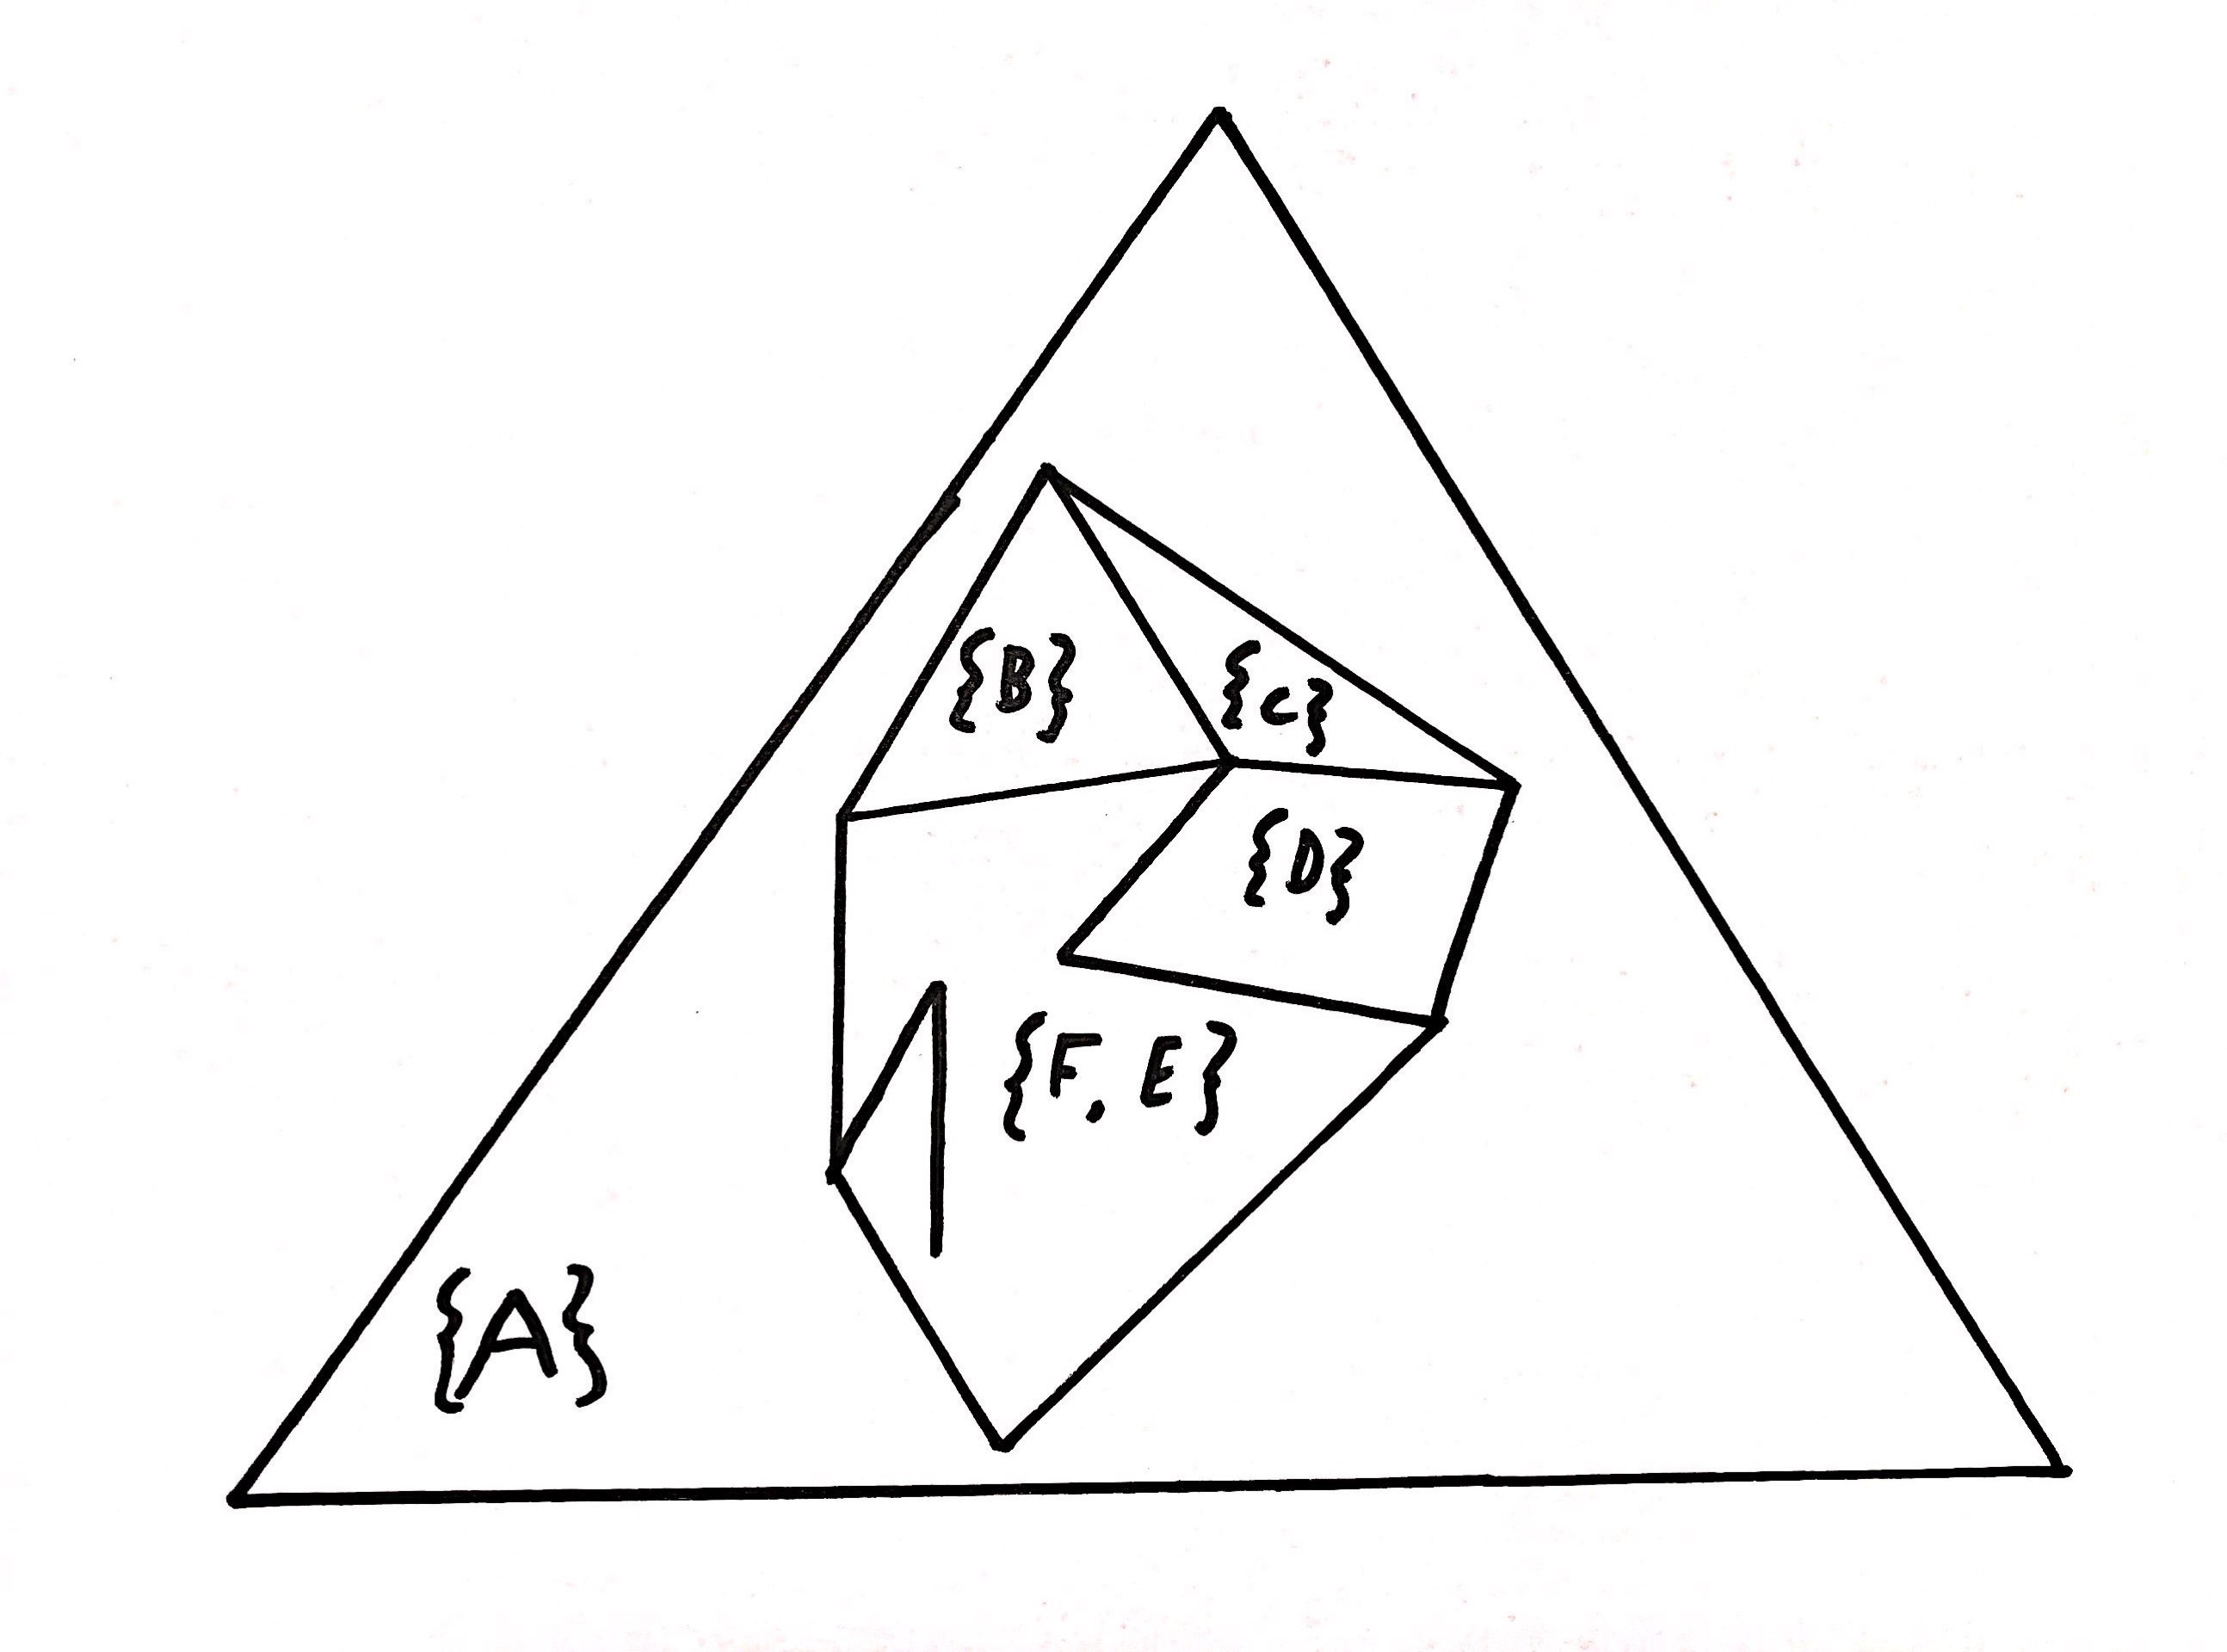 {B}
{c}
{D}
{F, E}
{A}